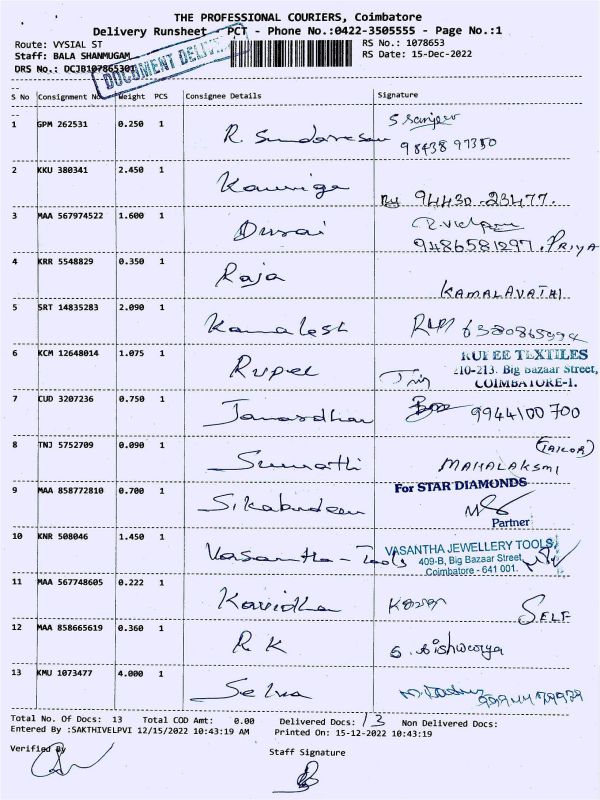 THE PROFESSIONAL COURIERS, Coimbatore
Delivery Runsheet - PCT - Phone No.:0422-3505555 - Page No.:1
Route: VYSIAL ST RS No.: 1078653
Staff: BALA SHANMUGAM RS Date: 15-Dec-2022
DRS No.: DCJB107865301
DOCUMENT DELIVERY
S No Consignment No Weight PCS Consignee Details Signature
1 GPM 262531 0.250 1 R. Sundaresan S Sanjeev
98438 97350
2 KKU 380341 2.450 1 94430-23477.
3 MAA 567974522 1.600 1 Durai
9486581297. PRIYA
4 KRR 5548829 0.350 1 Raja KAMALAVATHI
5 SRT 14835283 2.090 1 Kamalesh
6 KCM 12648014 1.075 1 Rupee RUPEE TEXTILES
210-213. Big Bazaar Street,
COIMBATORE-1.
7 CUD 3207236 0.750 1 Janardhan 9944100700
8 TNJ 5752709 0.090 1 Sumathi MAHALAKSMI
(TAILOR)
9 MAA 858772810 0.700 1 For STAR DIAMONDS
Partner
10 KNR 508046 1.450 1 Vasantha - Tools VASANTHA JEWELLERY TOOLS,
409-B, Big Bazaar Street,
Coimbatore - 641 001.
11 MAA 567748605 0.222 1 Kavidha SELF
12 MAA 858665619 0.360 1 R K S. Aishwarya
13 KMU 1073477 4.000 1 Selva
Total No. Of Docs: 13 Total COD Amt: 0.00 Delivered Docs: 13 Non Delivered Docs:
Entered By :SAKTHIVELPVI 12/15/2022 10:43:19 AM Printed On: 15-12-2022 10:43:19
Verified By Staff Signature